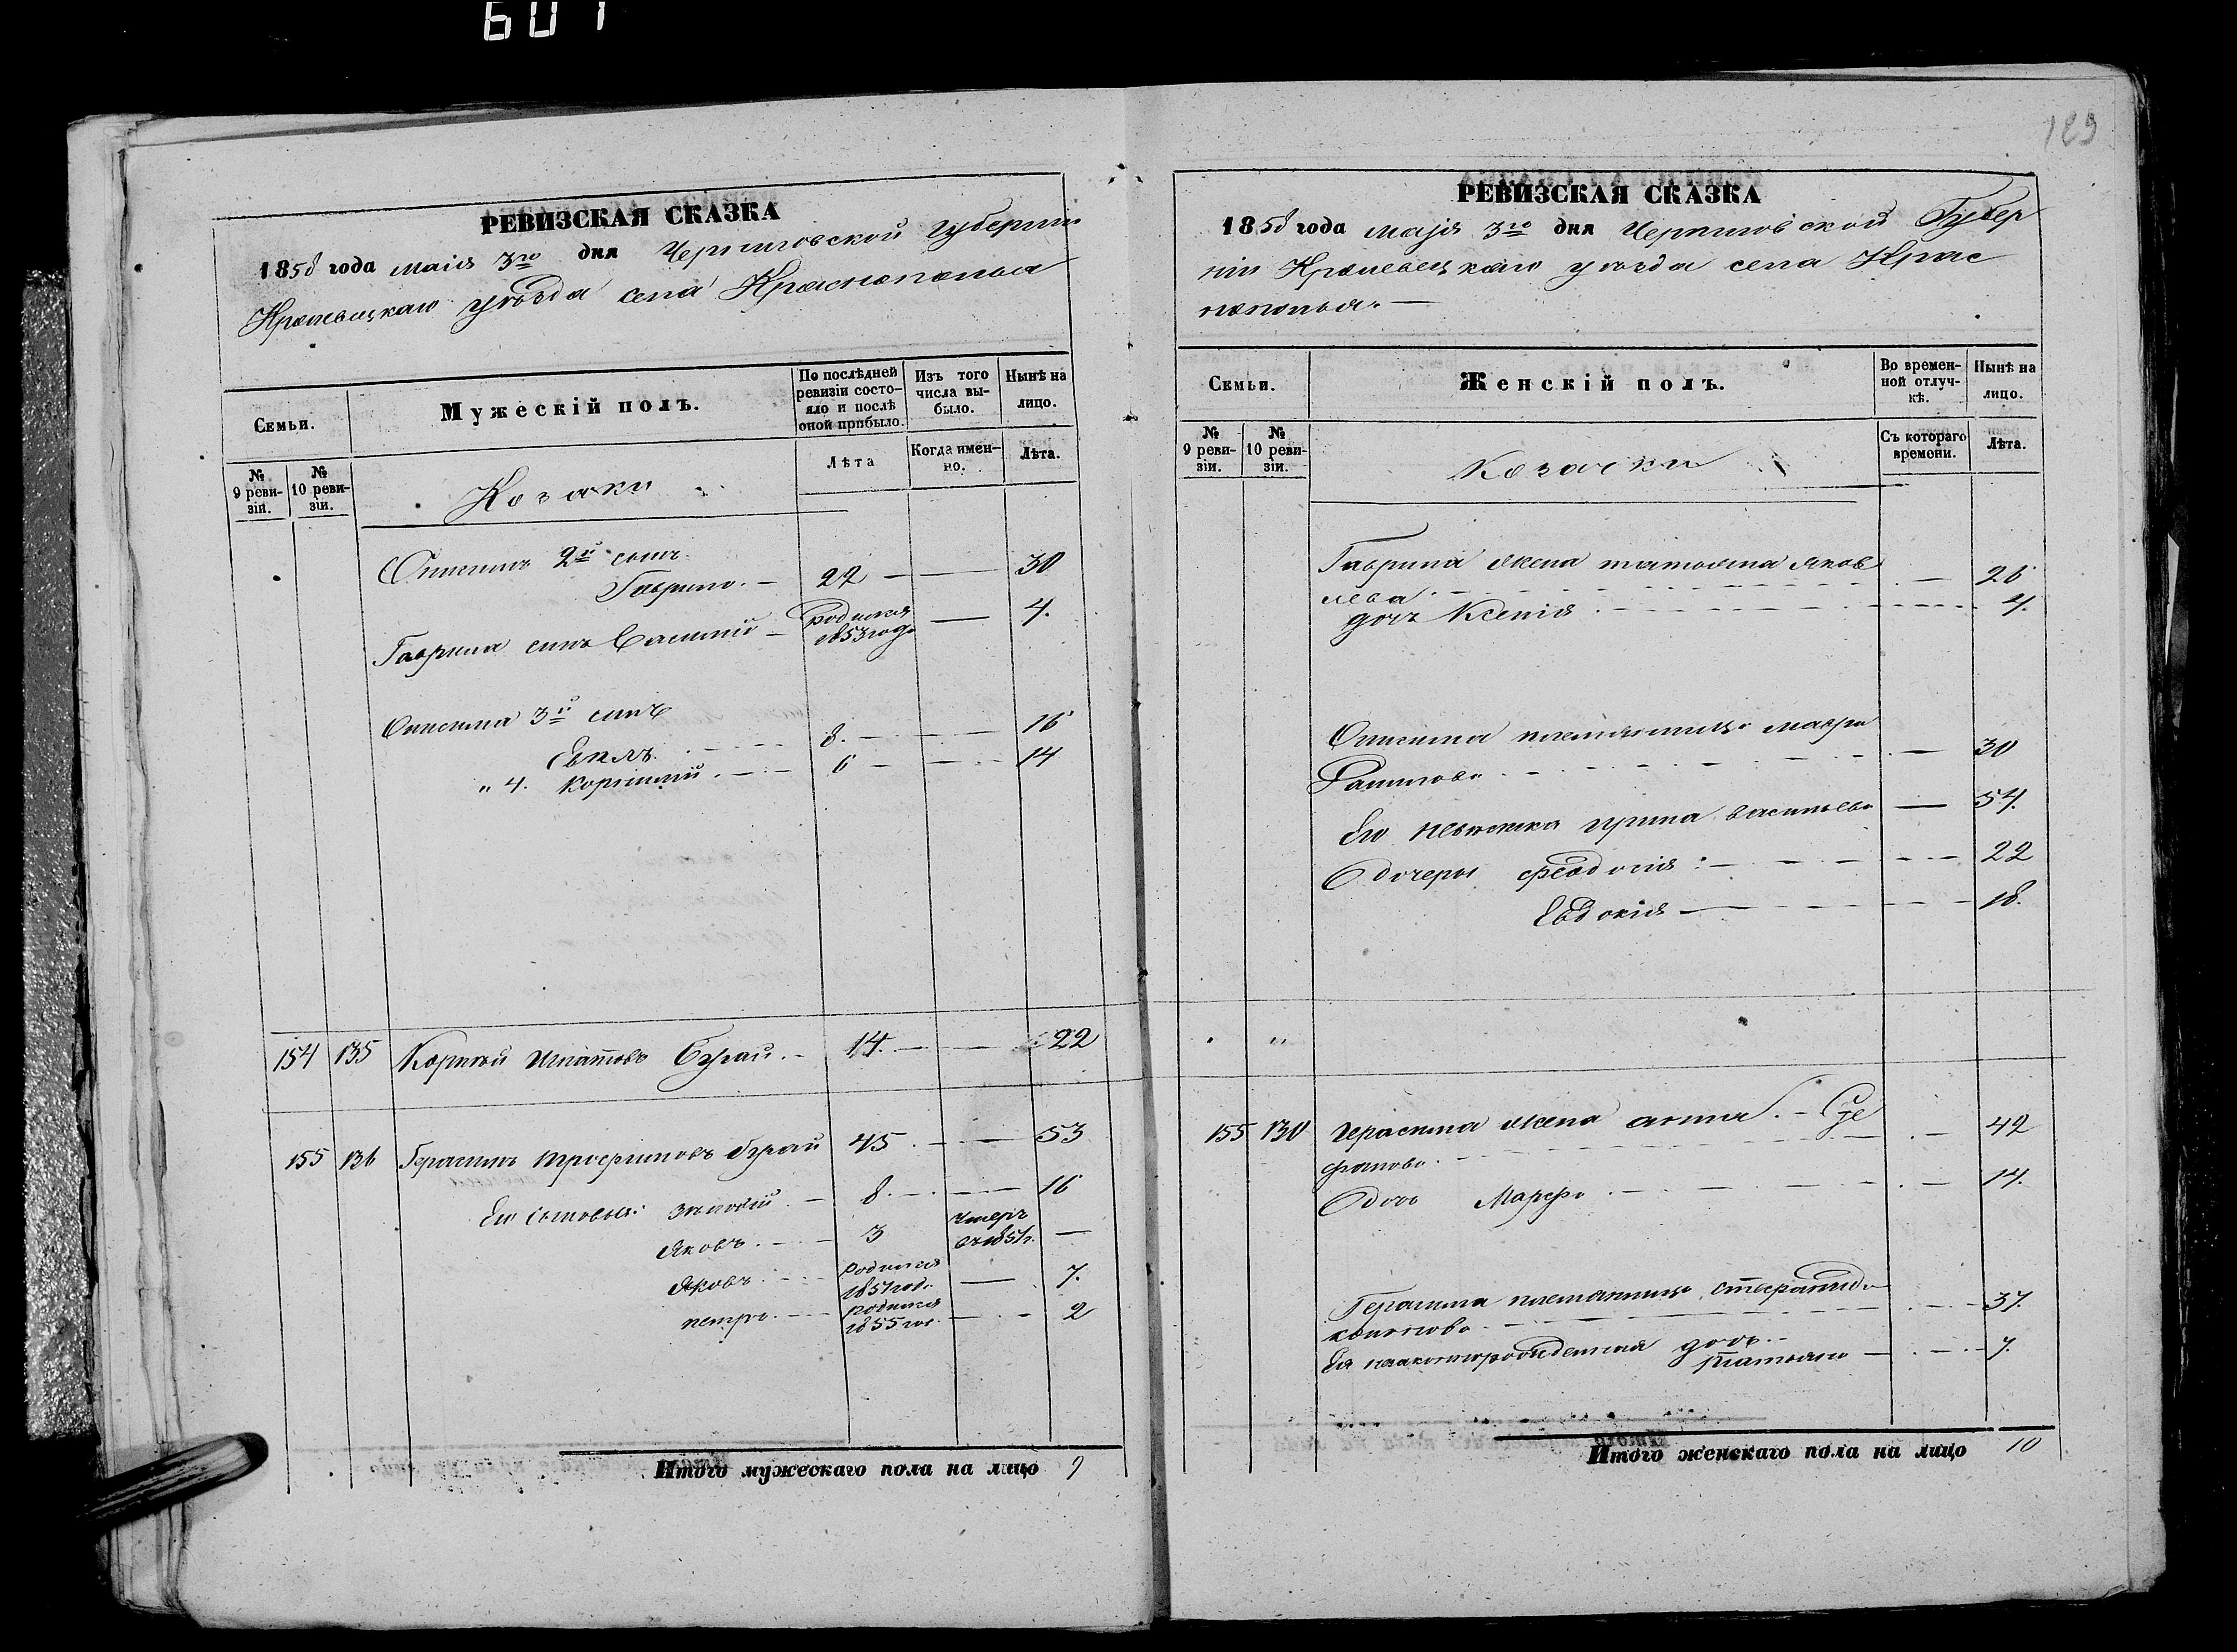 601
РЕВИЗСКАЯ СКАЗКА
1858 года маія 3го дня Черниговской губерніи
Кролевецкаго уѣзда села Краснополья
Семьи.
Мужескій полъ.
По послѣдней ревизіи состояло и послѣ оной прибыло.
Изъ того числа выбыло.
Нынѣ на лицо.
№ 9 ревизіи.
№ 10 ревизіи.
Козаки
Лѣта
Когда именно.
Лѣта.
Онисима 2й сынъ
Гаврило. — 22 — — 30
Гаврила сынъ Василій — родился 1853 года — 4.
Онисима 3й сынъ
8. — — 16
„ 4. Корнилій. — 6 — — 14
154 135 Корній Игнатовъ Бугай. — 14. — — 22
155 136 Герасимъ Трофимовъ Бугай 45 — — 53
Его сыновья: 8. — — 16
Яковъ. — 3 умеръ въ 1851г. —
Яковъ. — родился 1851 год. — 7.
Петръ. — родился 1855 год. — 2
Итого мужескаго пола на лицо 9
129
РЕВИЗСКАЯ СКАЗКА
1858 года маjя 3го дня Черниговской Губер
ніи Кролевецкаго уѣзда села Крас
нополья. —
Семьи.
Женскій полъ.
Во временной отлучкѣ.
Нынѣ на лицо.
№ 9 ревизіи.
№ 10 ревизіи.
Козачки
Съ котораго времени.
Лѣта.
Гаврила жена татьяна яков
лева. — 26
дочь Ксенія — 4.
Онисима племянница мавра
— 30
Его невѣстка ирина васильева — 54.
Ея дочеры феодосія: — 22
Евдокія — 18.
„ „
155 130 Герасима жена анна. — Сте
фанова. — 42
Ея дочь Марфа — 14.
Герасима племянница стефанида
— 37.
Ея незаконнорожденная дочь —
татьяна — 7.
Итого женскаго пола на лицо 10